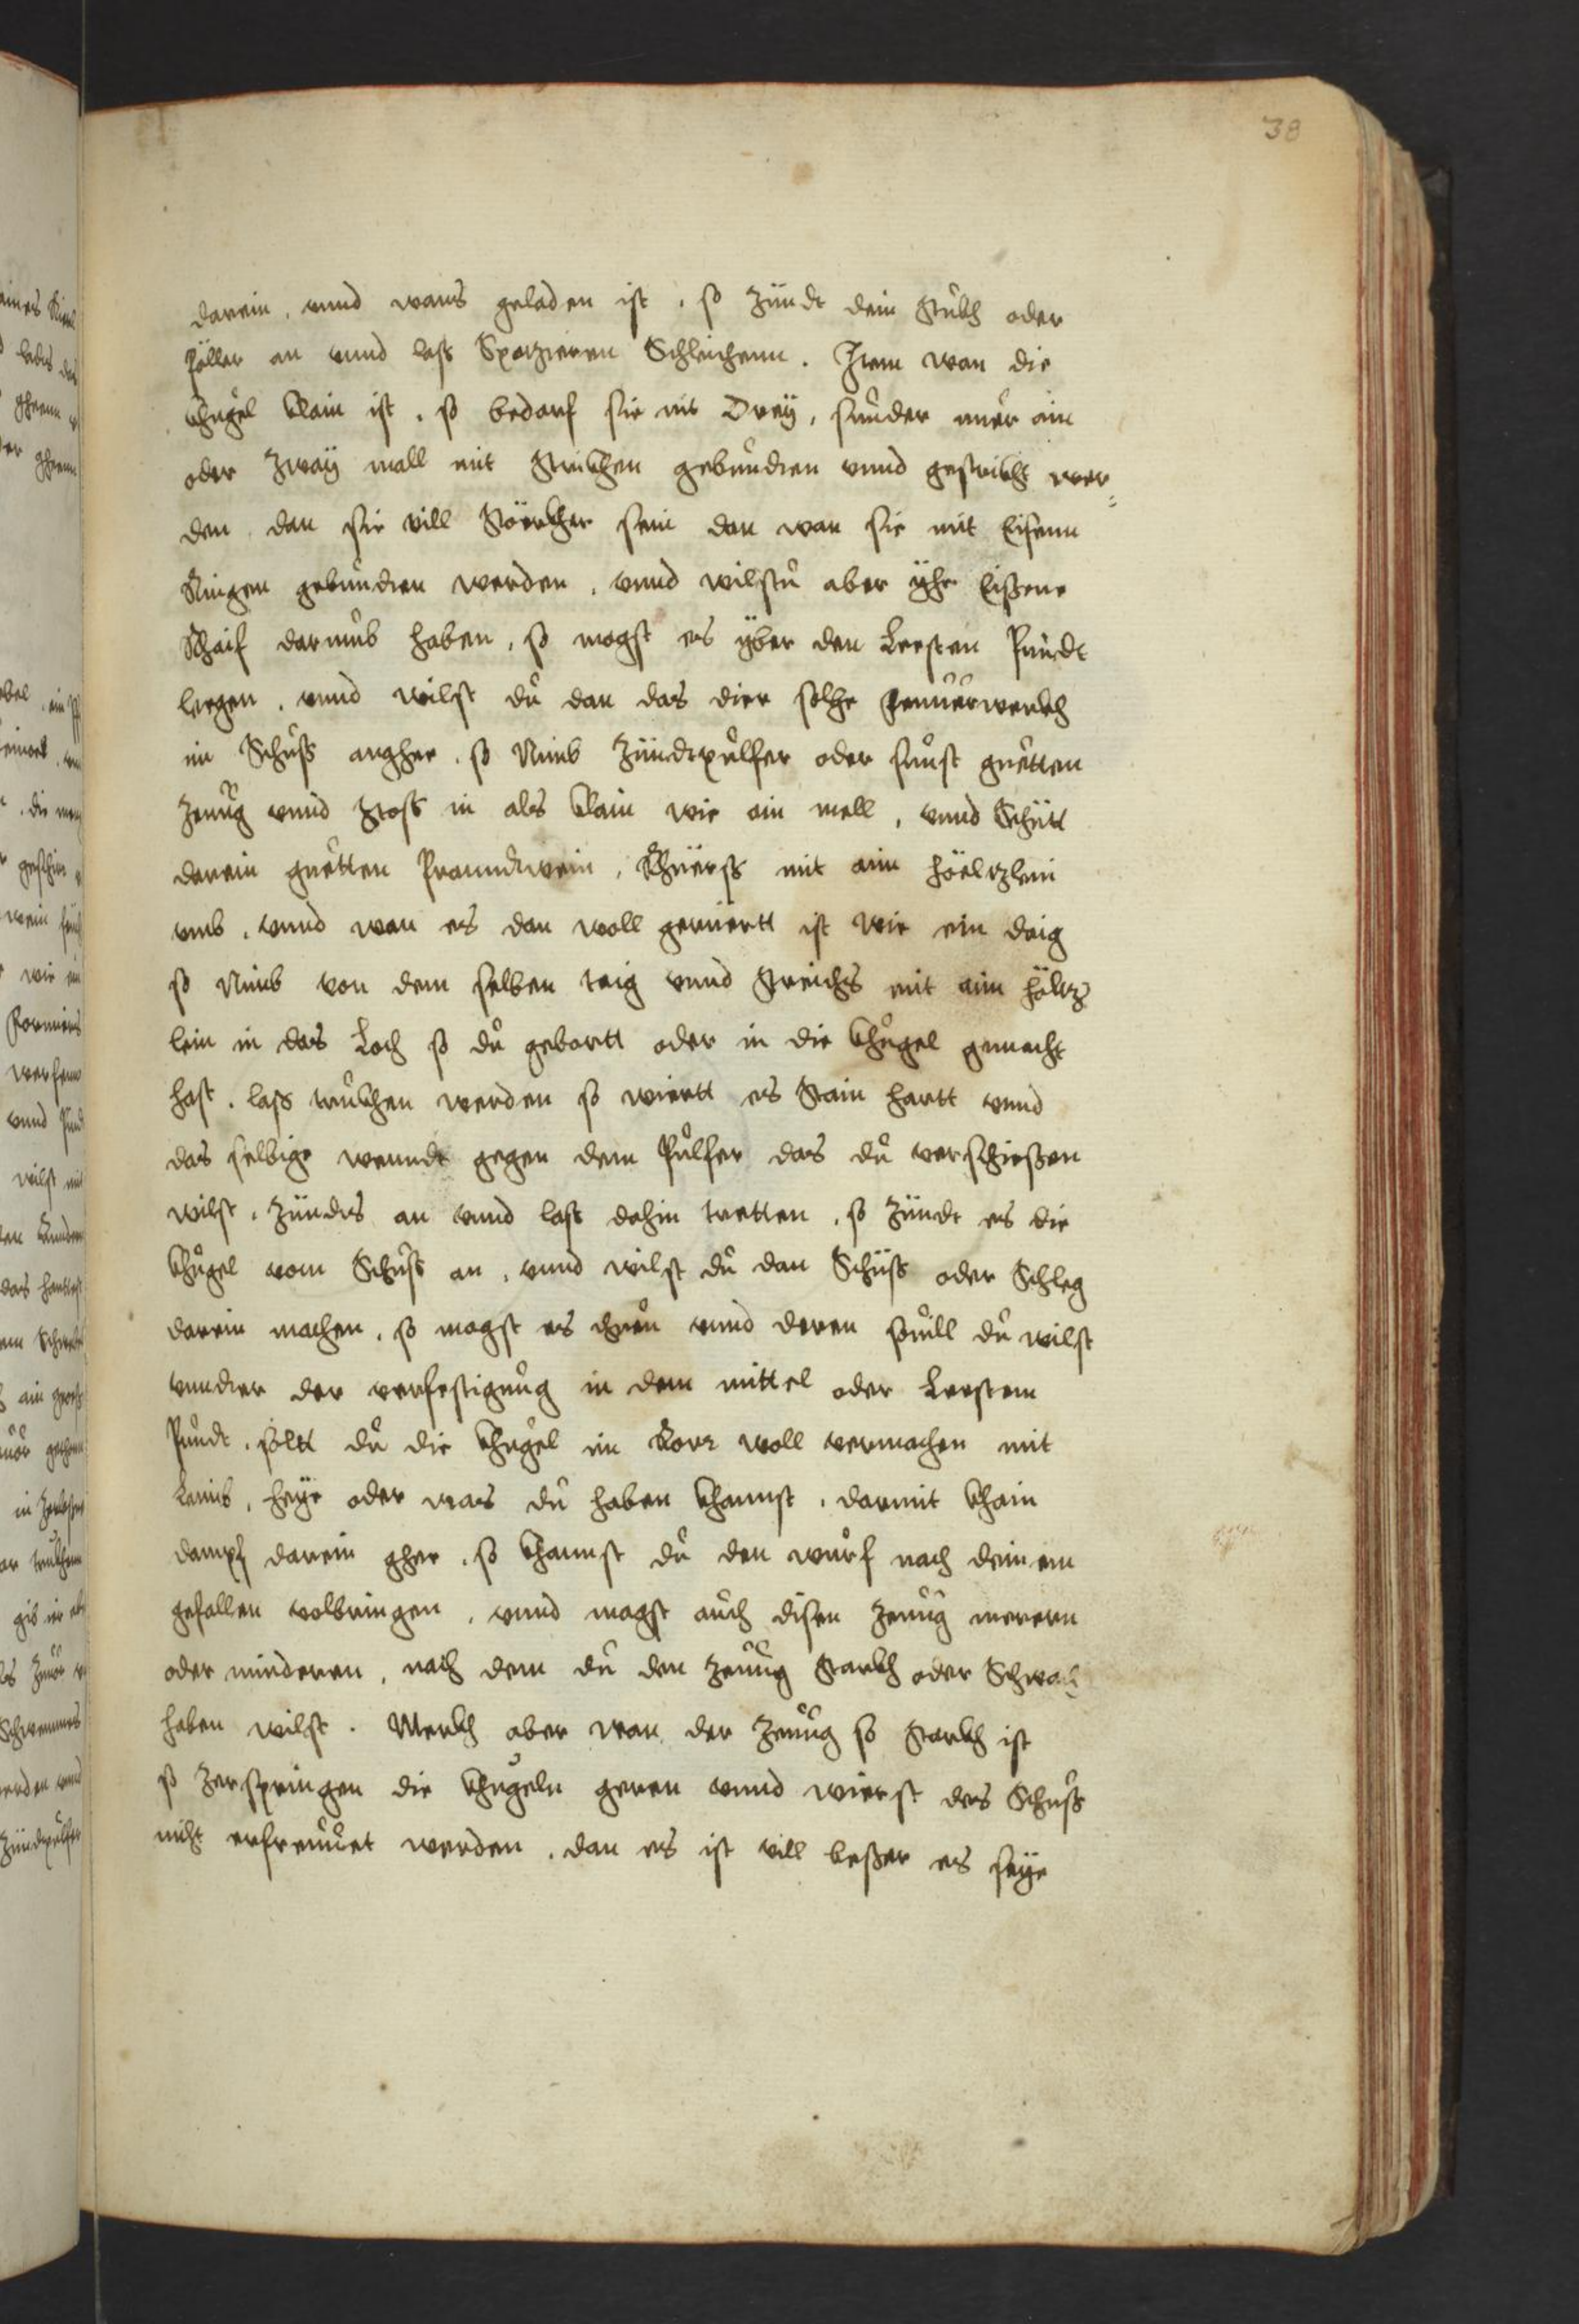 38
darein, vnnd wans geladen ist, so Zündt dein Stückh oder
Pöller an vnnd lass Spatzieren Schleichenn. Item wan die
Khugel klain ist, so bedarf sie nit Drey, sunder nuer ain
oder Zway mall mit Strickhen gebundten vnnd gestrickht wer=
den, dan sie vill Störckher sein dan wan sie mit Eisenn
Ringen gebundten werden, vnnd wilstu aber yhe Eissene
Raif darumb haben, so magst es yber den Lersten Pundt
legen, vnnd wilst du dan das dier solche Feuuerwerckh
im Schuss anghee, so Nimb Zündtpulfer oder sunst guetten
Zeuug vnnd Stoss in als klain wie ain mell, vnnd Schütt
darein guetten Pranndtwein, Rhüerss mit aim höeltzlein
vmb, vnnd wan es dan woll gerüertt ist wie ein daig
so Nimb von dem selben taig vnnd Streichs mit aim höltz
lein in das Loch so du gebortt oder in die Khugel gemacht
hast, lass truckhen werden so wiertt es Stain hartt vnnd
das selbige wenndt gegen dem Pulfer das du verschiessen
wilst, Zündts an vnnd lass dahin tretten, so Zündt es die
Khugel vom Schuss an, vnnd wilst du dan Schüss oder Schleg
darein machen, so magst es thuen vnnd deren souill du wilst
vnndter der verfestigung in dem mittel oder Lersten
Pundt, soltt du die Khugel im Rorr woll vermachen mit
Laimb, heye oder was du haben khannst, darmit khain
dampf darein ghee, so khannst du den wurf nach deinem
gefallen volbringen, vnnd magst auch disen Zeuug meren
oder minderen, nach dem du den Zeuug Starckh oder Schwach
haben wilst. Merckh aber wan der Zeuug so Starckh ist
so Zerspringen die Khugeln geren vnnd wierst des Schuss
nicht erfreuuet werden, dan es ist vill besser es seye